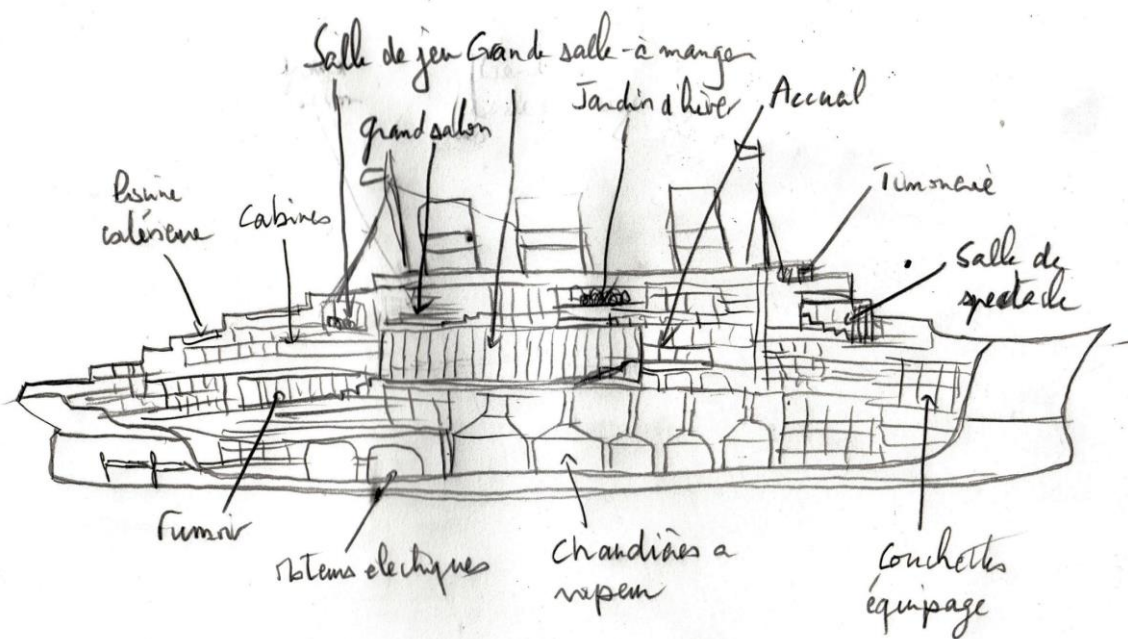 Salle de jeu
Grande salle-à manger
Jardin d'hiver
Accueil
grand salon
Piscine
extérieure
Cabines
Timonerie
Salle de
spectacle
Fumoir
Moteurs electriques
Chaudières a
vapeur
Couchettes
équipage